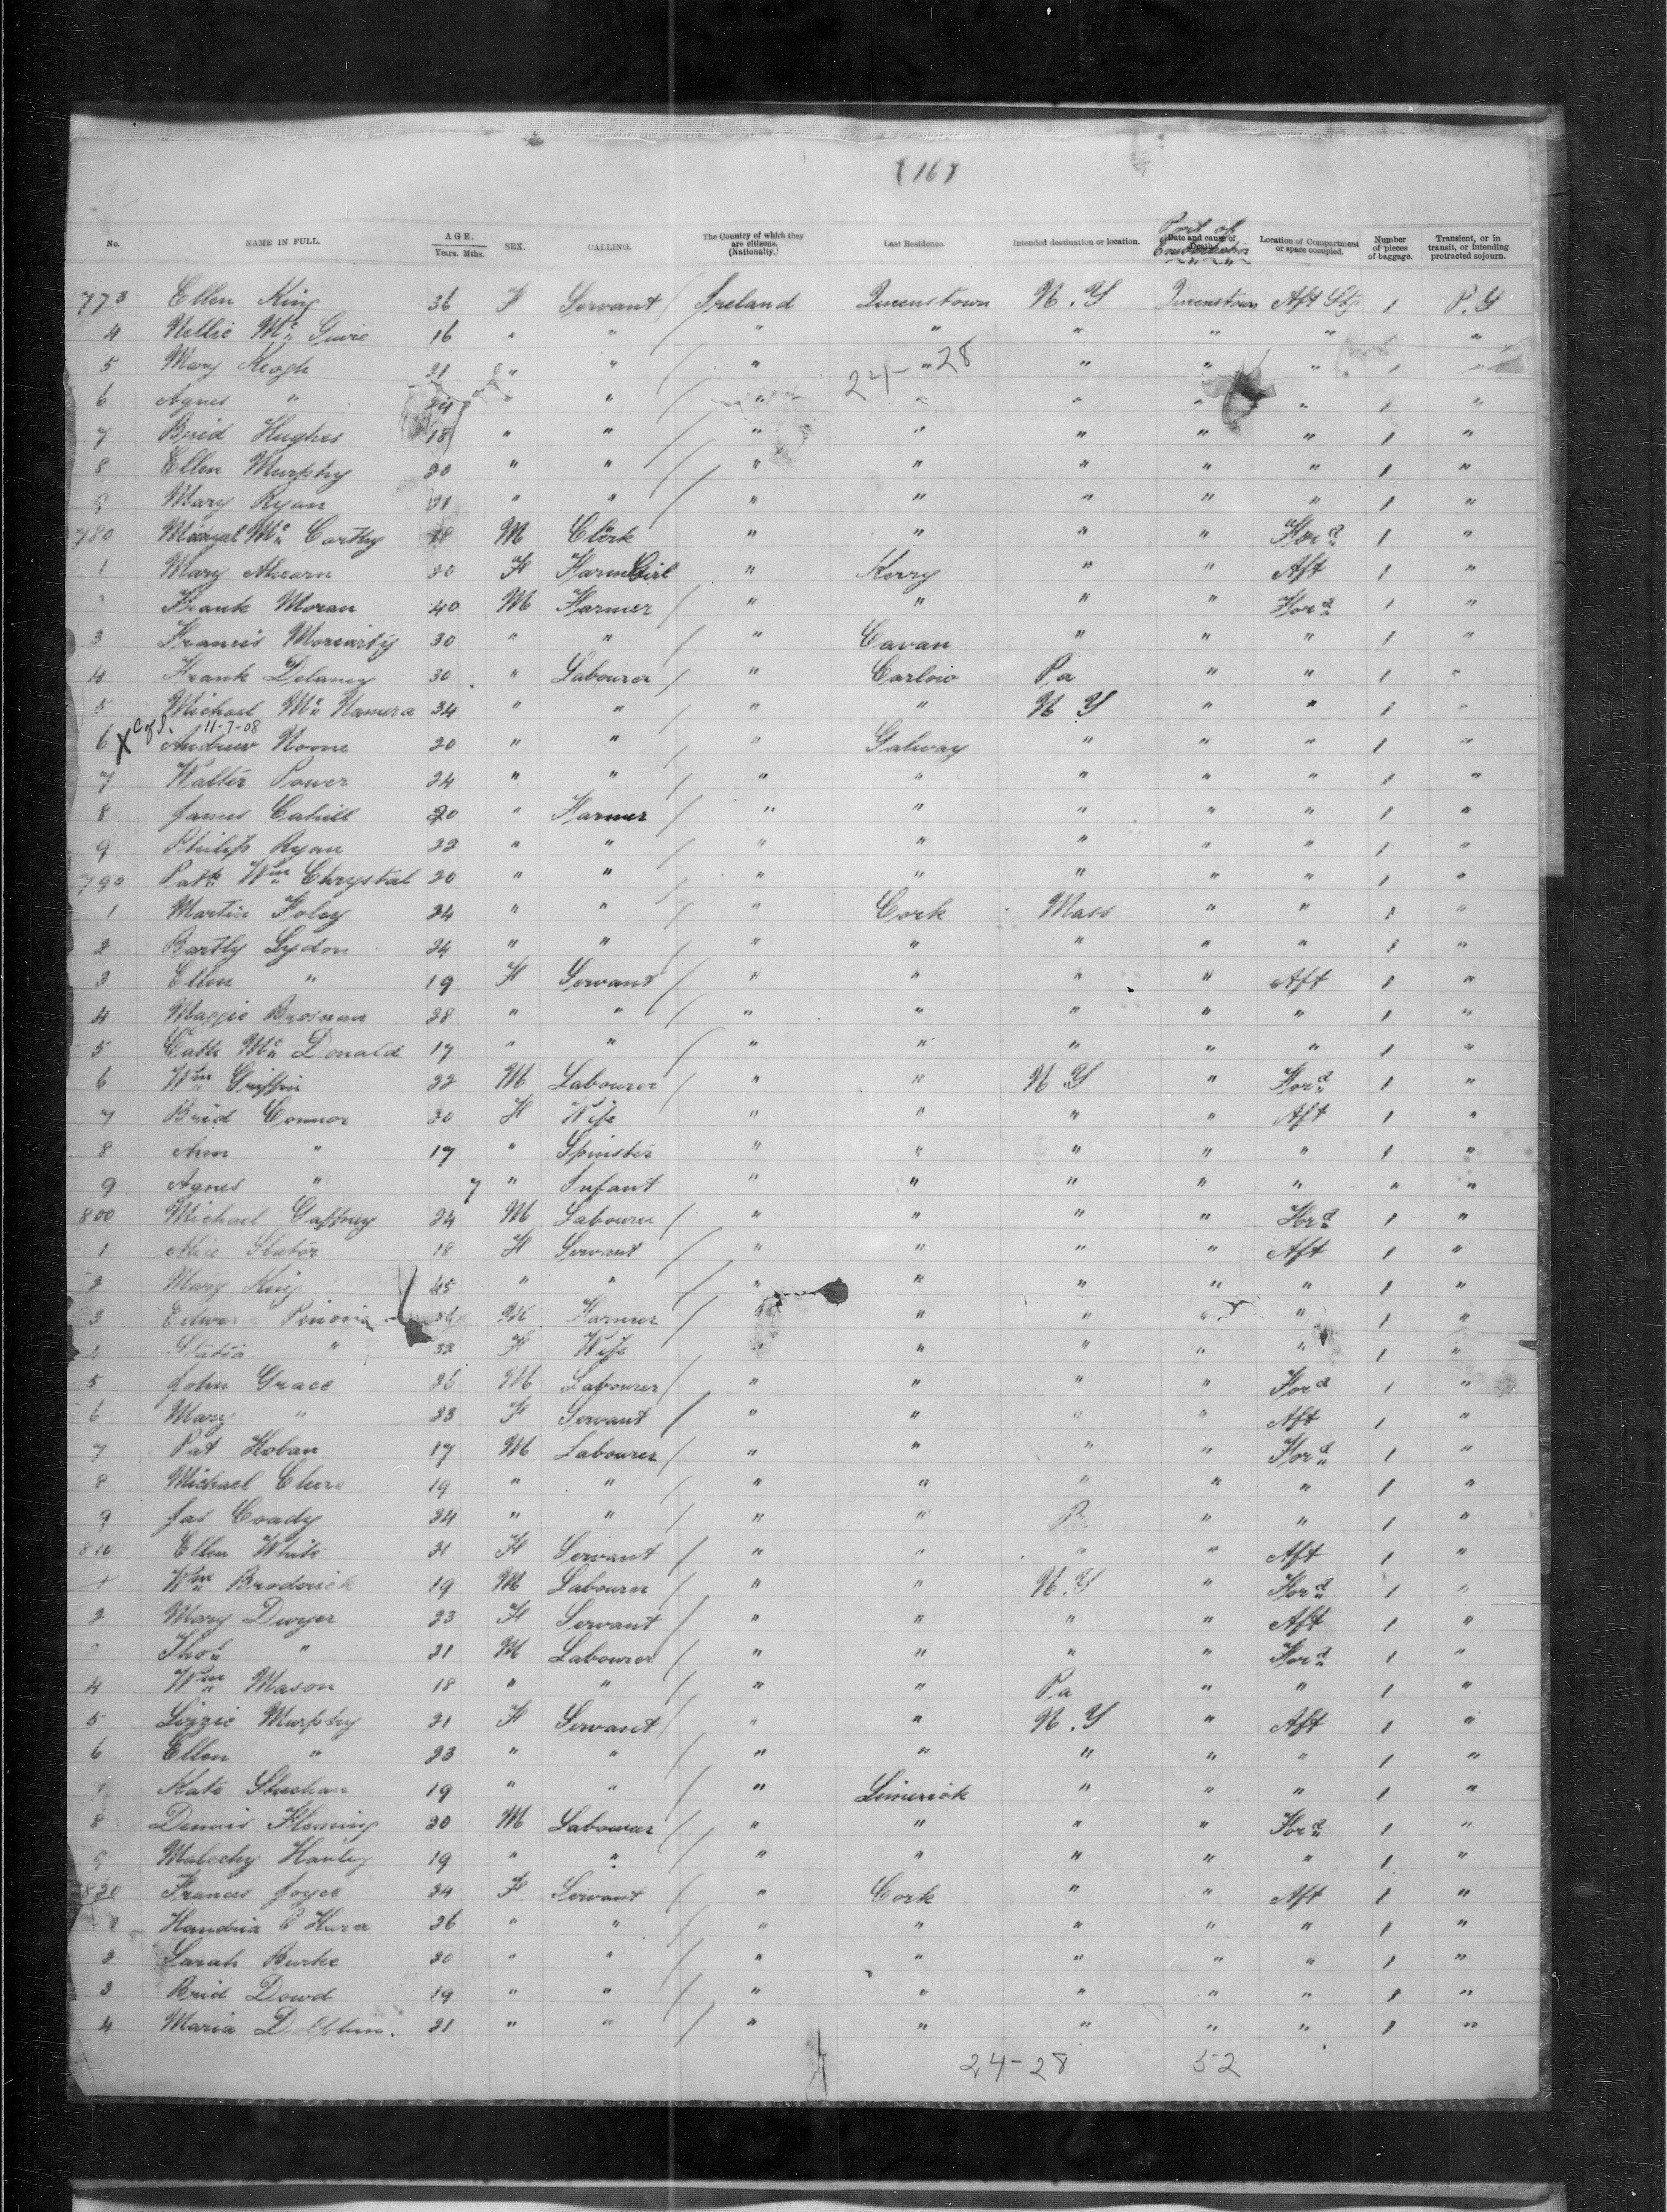 (16)
No. NAME IN FULL. AGE. Years. Mths. SEX. CALLING. The Country of which they are citizens. (Nationality.) Last Residence. Intended destination or location. Port of Date and cause of Death. Location of Compartment or space occupied. Number of pieces of baggage. Transient, or in transit, or intending protracted sojourn.
773 Ellen King 36 F Servant / Ireland Queenstown N.Y Queenstown Aft Stg 1 P.S
4 Nellie Mc 16 " " / " " " " " "
5 Mary Keogh 21 " " / " " 24-28 " " " 1 "
6 Agnes " 24 " " / " " " " " 1 "
7 Brid Hughes 18 " " / " " " " " 1 "
8 Ellen Murphy 20 " " / " " " " " 1 "
9 Mary Ryan 21 " " / " " " " " 1 "
780 Mc Carthy 18 M Clerk " " " " Ford 1 "
1 Mary Ahearn 20 F Farm Girl " Kerry " " Aft 1 "
Frank Moran 40 M Farmer / " " " " Ford 1 "
3 Francis Moriarty 30 " " / " Cavan " " " 1 "
4 Frank Delaney 30 " Labourer / " Carlow Pa " " 1 "
5 Michael Mc Namera 34 " " / " " N Y " " 1 "
X C of S. 11-7-08
6 Andrew Noone 20 " " / " Galway " " " 1 "
7 Walter Power 24 " " / " " " " " 1 "
8 James Cahill 20 " Farmer / " " " " " 1 "
9 Philip Ryan 22 " " / " " " " " 1 "
790 Patk Wm Chrystal 20 " " / " " " " " 1 "
1 Martin Foley 24 " " / " Cork Mass " " 1 "
2 Bartly Lydon 24 " " / " " " " " 1 "
3 Ellen " 19 F Servant / " " " " Aft 1 "
4 Maggie Brosnan 28 " " / " " " " " 1 "
5 Cath Mc Donald 17 " " / " " " " " 1 "
6 Wm Griffin 22 M Labourer / " " N Y " Ford 1 "
7 Brid Connor 30 F Wife " " " " Aft 1 "
8 Ann " 17 " Spinster " " " " " 1 "
9 Agnes " 7 " Infant " " " " " " "
800 Michael Gaffney 24 M Labourer / " " " " Ford 1 "
1 Alice Slator 18 F Servant / " " " " Aft 1 "
2 Mary King 45 " " / " " " " " 1 "
3 M Farmer / " " " " " 1 "
Statia " 32 F Wife " " " " " 1 "
5 John Grace 26 M Labourer / " " " " Ford 1 "
6 Mary " 23 F Servant / " " " " Aft 1 "
7 Pat Hoban 17 M Labourer / " " " " Ford 1 "
8 Michael 19 " " / " " " " " 1 "
9 Jas Coady 24 " " / " " Pa " " 1 "
810 Ellen White 21 F Servant / " " " " Aft 1 "
1 Wm Broderick 19 M Labourer / " " N.Y " Ford 1 "
2 Mary Dwyer 23 F Servant / " " " " Aft 1 "
3 Thos " 21 M Labourer / " " " " Ford 1 "
4 Wm Mason 18 " " / " " Pa " " 1 "
5 Lizzie Murphy 21 F Servant / " " N.Y " Aft 1 "
6 Ellen " 23 " " / " " " " " 1 "
7 Kate Sheehan 19 " " / " Limerick " " " 1 "
8 Dennis Fleming 20 M Labourer / " " " " Ford 1 "
9 Malachy Hanley 19 " " / " " " " " 1 "
820 Frances Joyce 24 F Servant / " Cork " " Aft 1 "
1 O Hara 26 " " / " " " " " 1 "
2 Sarah Burke 20 " " / " " " " " 1 "
3 Brid Dowd 19 " " / " " " " " 1 "
4 Maria Dolphin. 21 " " / " " " " " 1 "
24-28 52